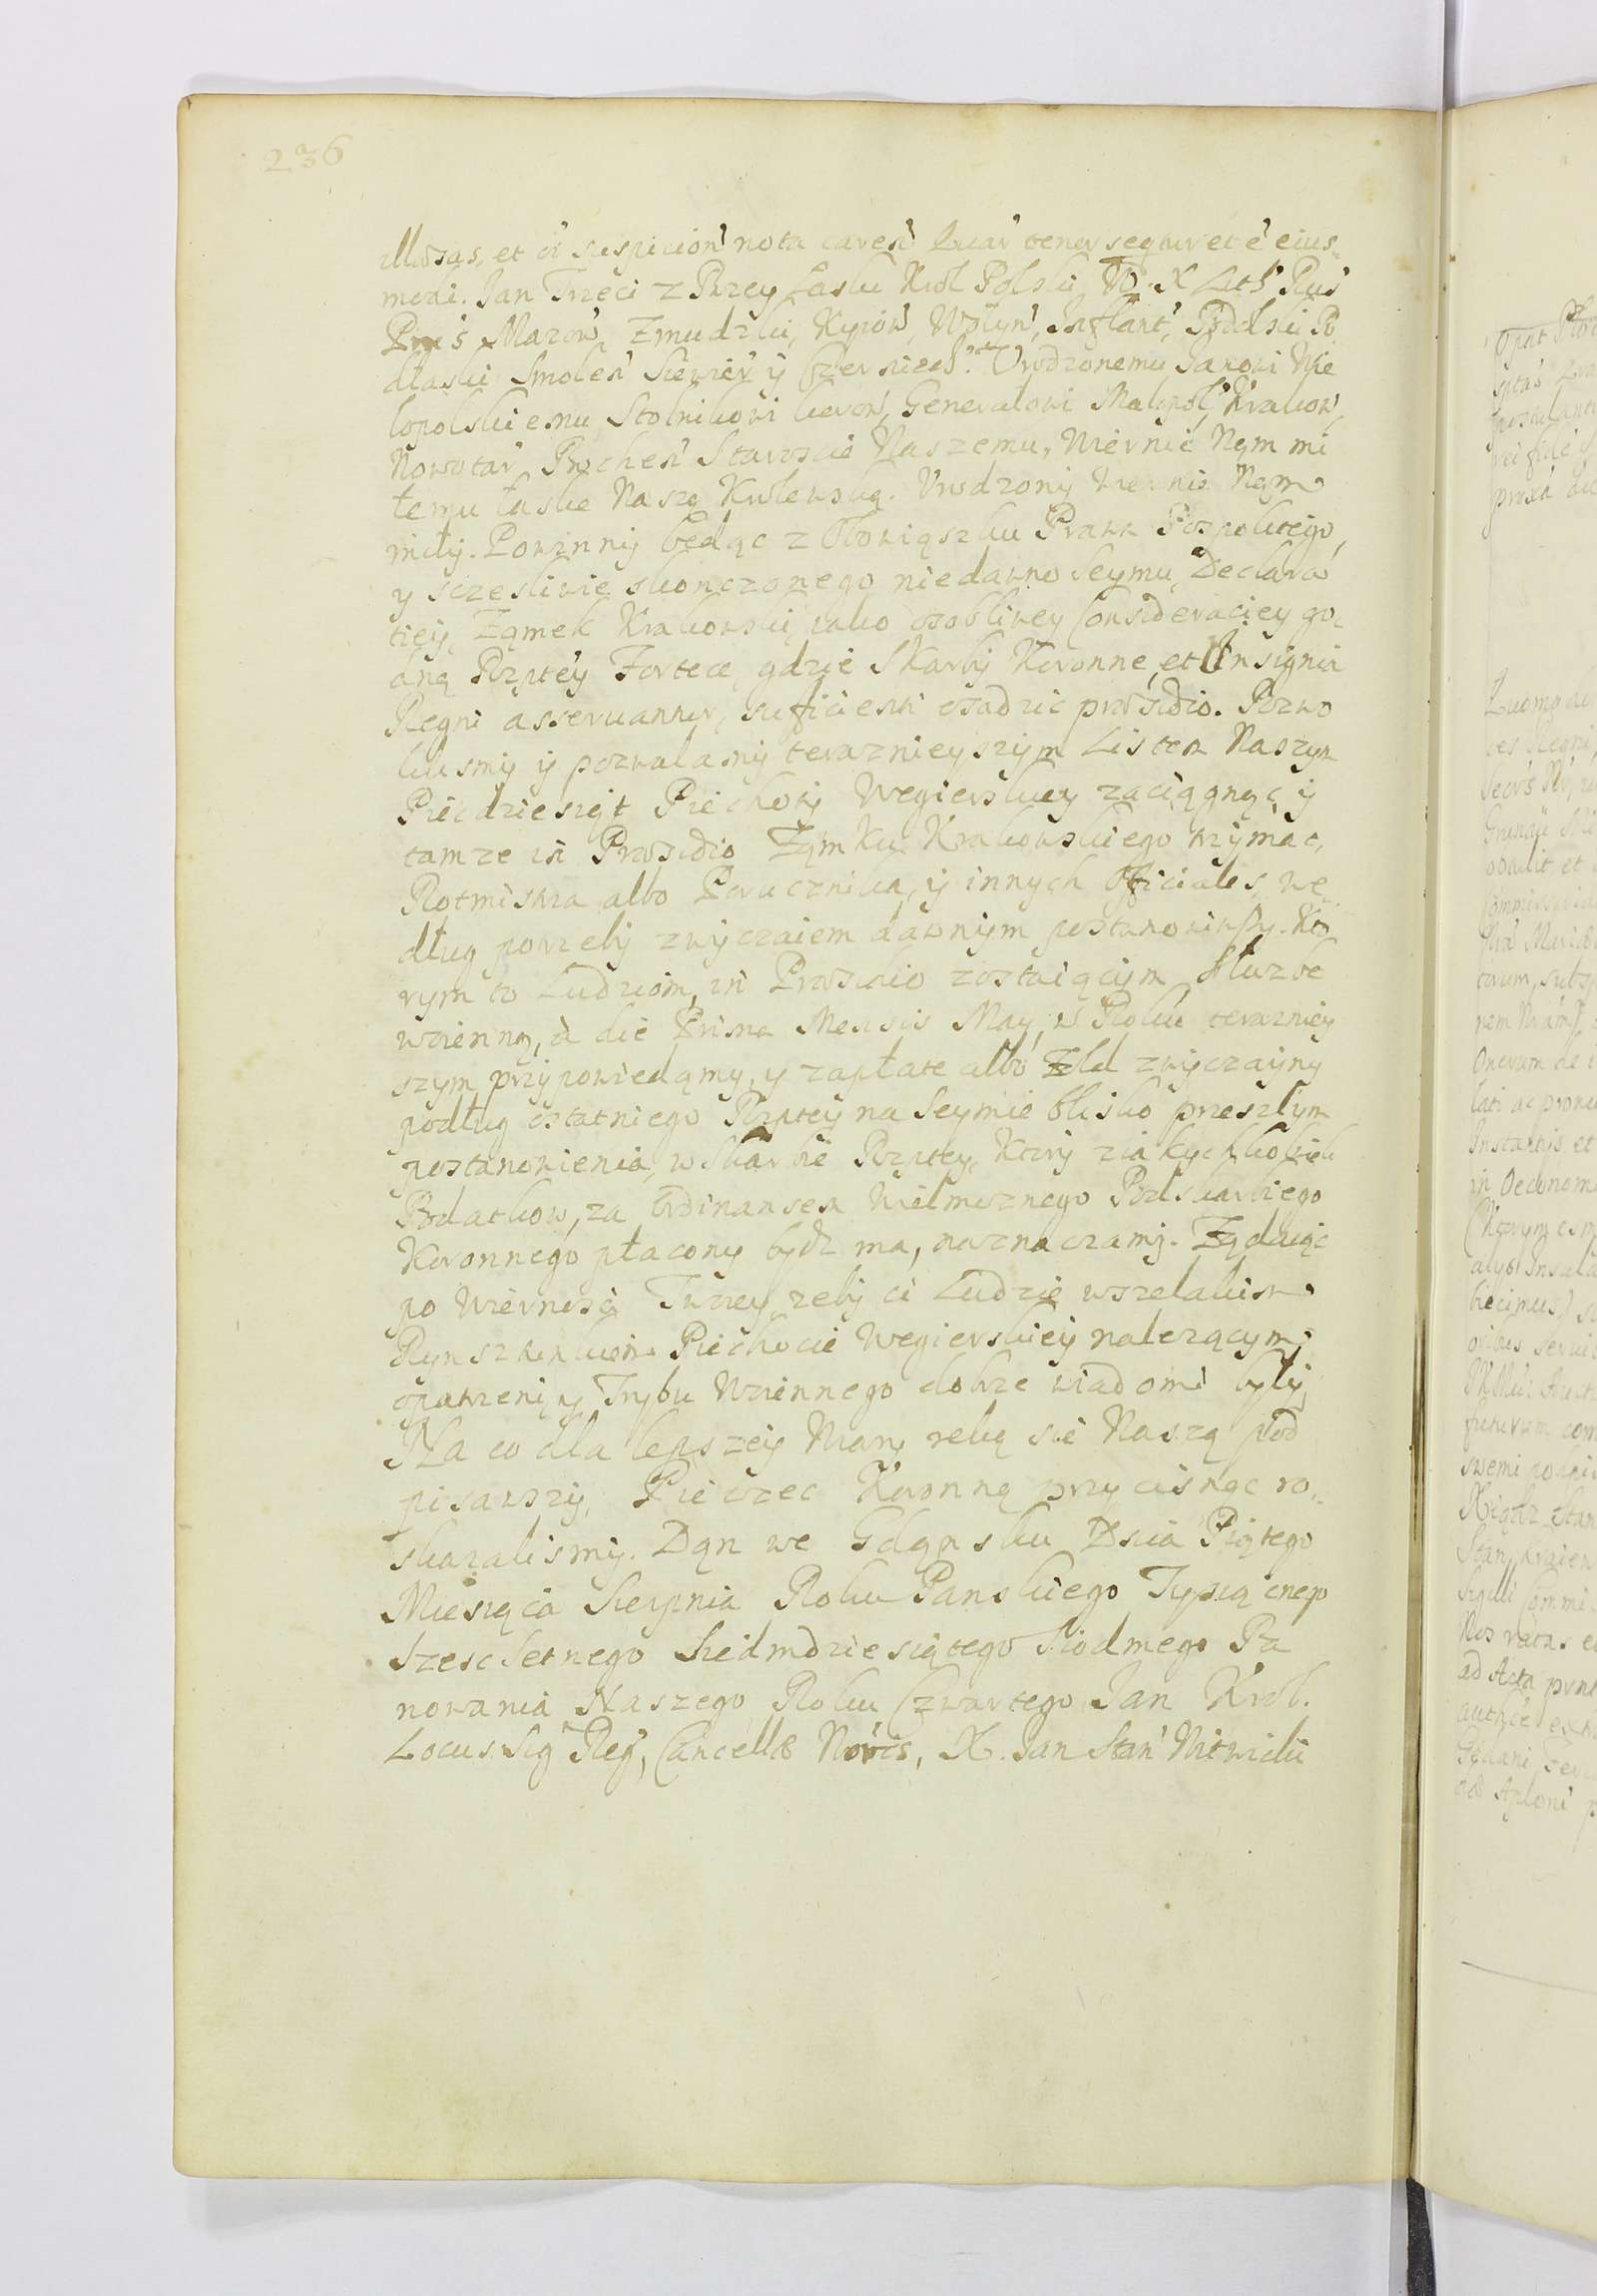 236
illæsas, et oi suspicion' nota caren' Quar' tenor sequitur et è eius„
modi. Jan Trzeci z Bozey Łaski Krol Polski W. X Lith' Rus'
Prus' Mazow' Zmudzki, Kyiow', Wołyn', Inflant', Podolski Po
dlaski Smolen' Siewier' y Czerniech'. Urodzonemu Janowi Wie
lopolskiemu Stolnikowi Koron', Generałowi Małopol', Krakow',
Nowotar', Bochen' Staroscie Naszemu, Wiernie Nąm mi
łemu łaskę Naszą Krolewską. Urodzony Wiernie Nąm
miły. Powinny będąc z Obowiąszku Prawa Pospolitego,
y sczesliwie skonczonego niedawno Seymu, Declara
tiey, Ząmek Krakowski, iako osobliwey Consideraciey go„
dną Rzptey Fortece, gdzie Skarby Koronne, et Insignia
Regni asseruantur, sufficienti osadzic præsidio. Pozwo
lilismy y pozwalamy terazniejszym Listem Naszym
Piecdziesiąt Piechoty Wegierskiey zaciągnąc y
tamze in Præsidio Ząmku Krakowskiego trzymac,
Rotmistrza albo Porucznika, y innych Officiales, we„
dług potrzeby zwyczaiem dawnym postanowiwszy. Kto
rym to Ludziom, in Præsidio zostaiącym słuzbe
woienną, à die Prima Mensis May, w Roku terazniey
szym przypowiedamy, y zapłate albo Zold zwyczayny
podług ostatniego Rzptey na Seymie blisko przeszłym
postanowienia, w Skarbie Rzptey, Ktory z iakychkolwiek
Podatkow, za Ordinansem Wielmoznego Podskarbiego
Koronnego płacony bydz ma, naznaczamy. Ządaiąc
po Wiernosci Twoiey, zeby ci Ludzie wszelakim
Rynsztunkiem Piechocie Wegierskiey nalezącym,
opatrzeni, y Trybu Woiennego dobrze wiadomi byli,
Na co dla lepszey Wiary ręką się Naszą pod
pisawszy, Pieczec Koronną przycisnąc ro„
skazalismy. Dąn we Gdąnsku Dnia Piątego
Miesiąca Sierpnia Roku Panskiego Tysiącnego
Szescsetnego Siedmdziesiątego Siodmego Pa
nowania Naszego Roku Czwartego Jan Krol.
Locus Sig' Reg', Cancellæ Noris, X. Jan Stan' Witwicki